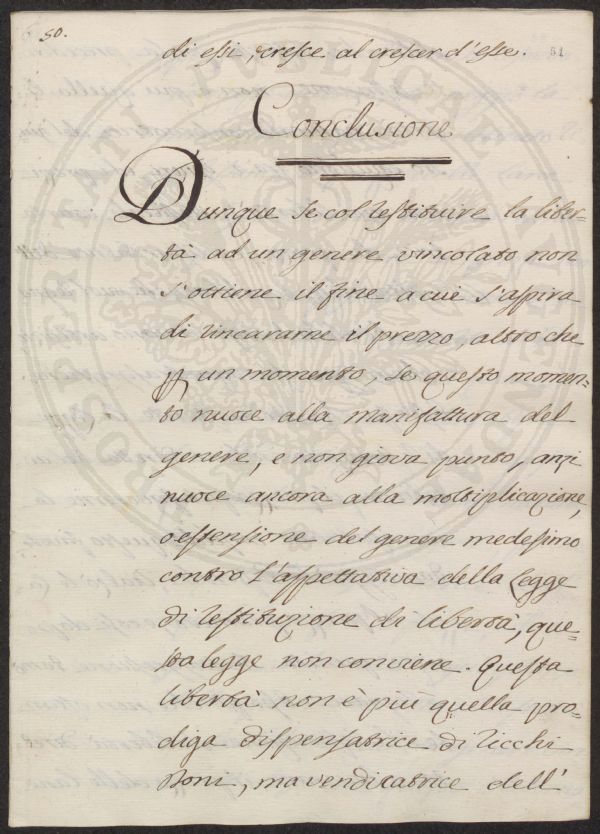 50.
51
di essi, cresce al crescer d'esse.
Conclusione
Dunque se col restituire la liber=
tà ad un genere vincolato non
s'ottiene il fine a cui s'aspira
di rincararne il prezzo, altro che
per un momento, se questo momen=
to nuoce alla manifattura del
genere, e non giova punto, anzi
nuoce ancora alla moltiplicazione,
o estensione del genere medesimo
contro l'aspettativa della Legge
di restituzione di libertà, que=
sta legge non conviene. Questa
libertà non è più quella pro=
diga dispensatrice di ricchi
doni, ma vendicatrice dell'